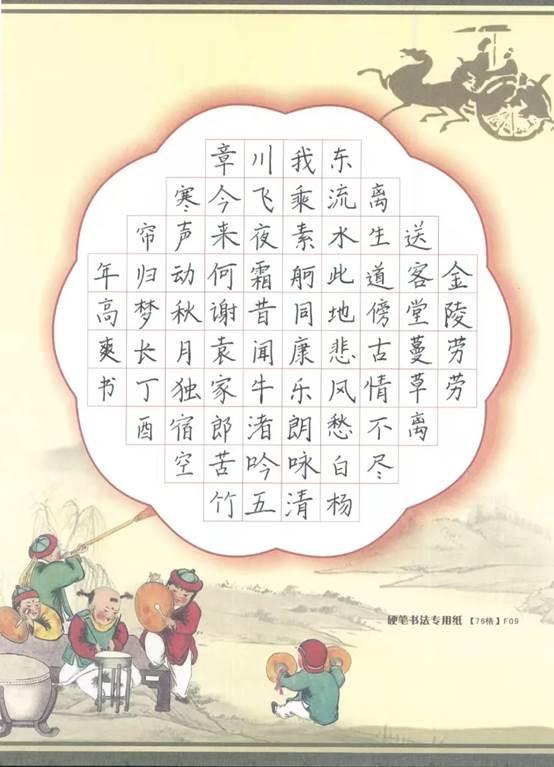 金陵劳劳
送客堂蔓草离
离生道傍古情不尽
东流水此地悲风愁白杨
我乘素舸同康乐朗咏清
川飞夜霜昔闻牛渚吟五
章今来何谢袁家郎苦竹
寒声动秋月独宿空
帘归梦长丁酉
年高爽书
硬笔书法专用纸【76格】F09